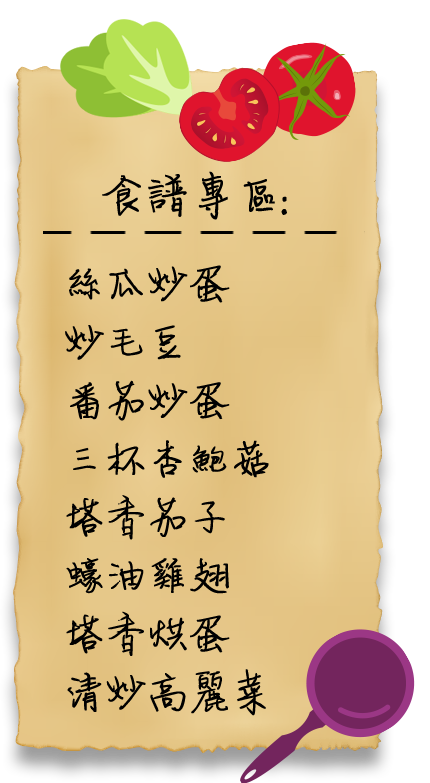 食譜專區:
絲瓜炒蛋
炒毛豆
番茄炒蛋
三杯杏鮑菇
塔香茄子
蠔油雞翅
塔香烘蛋
清炒高麗菜